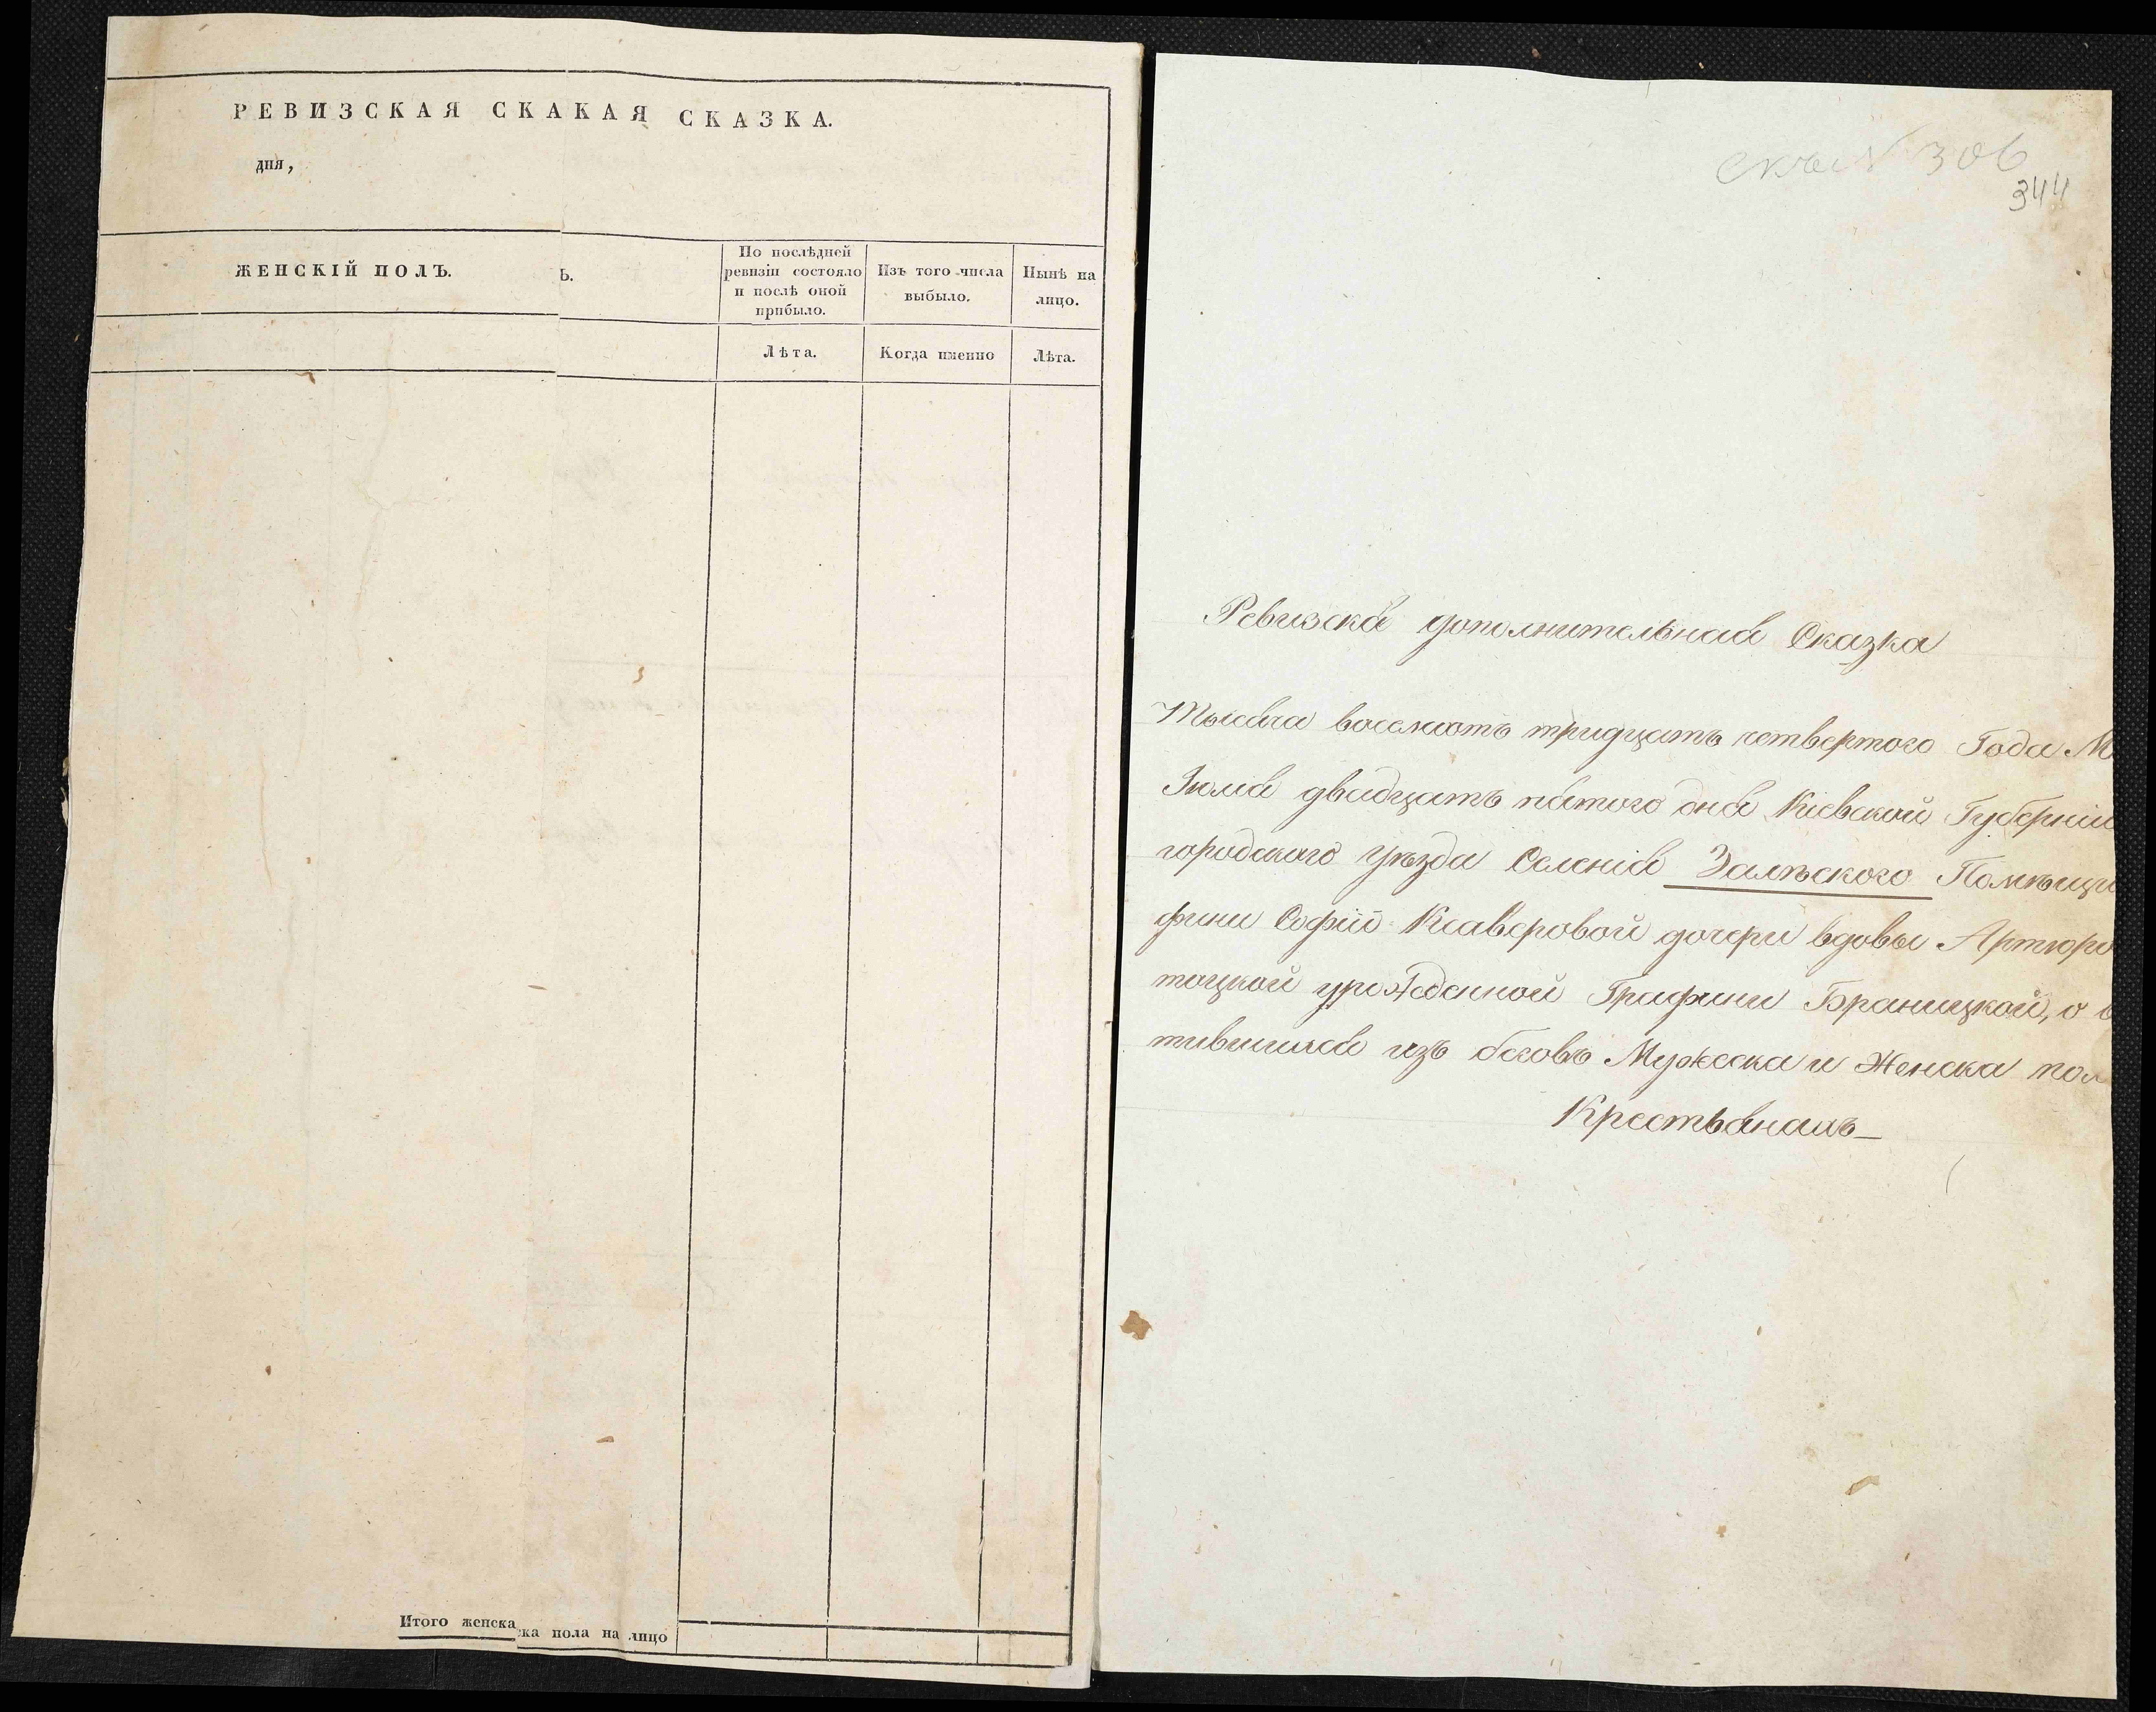 РЕВИЗСКАЯ СКАКАЯ СКАЗКА.
дня,
ЖЕНСКІЙ ПОЛЪ.
Ъ.
По послѣдней
ревизіи состояло
и послѣ оной
прибыло.
Изъ того числа
выбыло.
Нынѣ на
лицо.
Лѣта.
Когда именно
Лѣта.
Итого женска
ска пола на лицо
306
344
Ревизска дополнительная Сказка
Тысяча восемсотъ тридцать четвертого Года М
Іюля двадцать пятого дня Кіевской Губерніи
городского уѣзда Селенія Залѣского Помѣщи
фини Софіи Ксаверовой дочери вдовы Артюро
тоцкой урожденной Графини Браницкой, о в
тившихся изъ беговъ Мужеска и Женска пол
Крестьянахъ